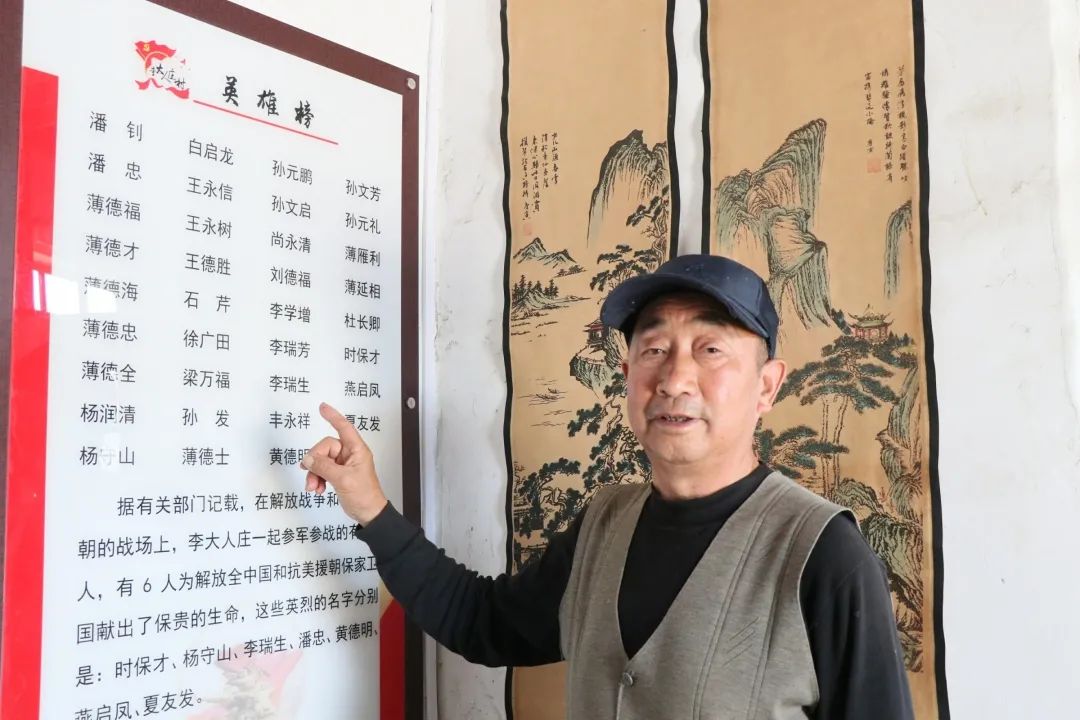 英雄榜
潘 钊 白启龙 孙元鹏 孙文芳
潘 忠 王永信 孙文启 孙元礼
薄德福 王永树 尚永清 薄雁利
薄德才 王德胜 刘德福 薄延相
薄德海 石 芹 李学增 杜长卿
薄德忠 徐广田 李瑞芳 时保才
薄德全 梁万福 李瑞生 燕启凤
杨润清 孙 发 丰永祥 夏友发
杨守山 薄德士 黄德明
据有关部门记载，在解放战争和
朝的战场上，李大人庄一起参军参战的有
人，有 6 人为解放全中国和抗美援朝保家卫
国献出了保贵的生命，这些英烈的名字分别
是：时保才、杨守山、李瑞生、潘忠、黄德明、
燕启凤、夏友发。